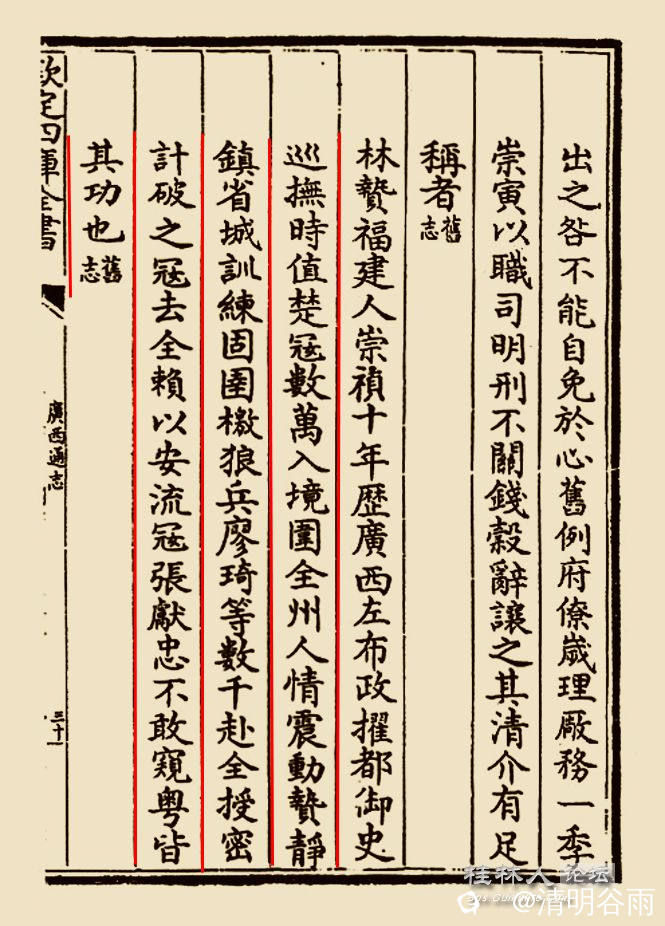 出之咎不能自免於心舊例府僚歲理厰務一季
崇寅以職司明刑不關錢榖辭讓之其清介有足
稱者舊志
林贄福建人崇禎十年歷廣西左布政擢都御史
巡撫時值楚冦數萬入境圍全州人情震動贄靜
鎮省城訓練固圉檄狼兵廖琦等數千赴全授密
計破之冦去全賴以安流冦張獻忠不敢窺粤皆
其功也舊志
欽定四庫全書
廣西通志
三十一
桂林人论坛
@清明谷雨